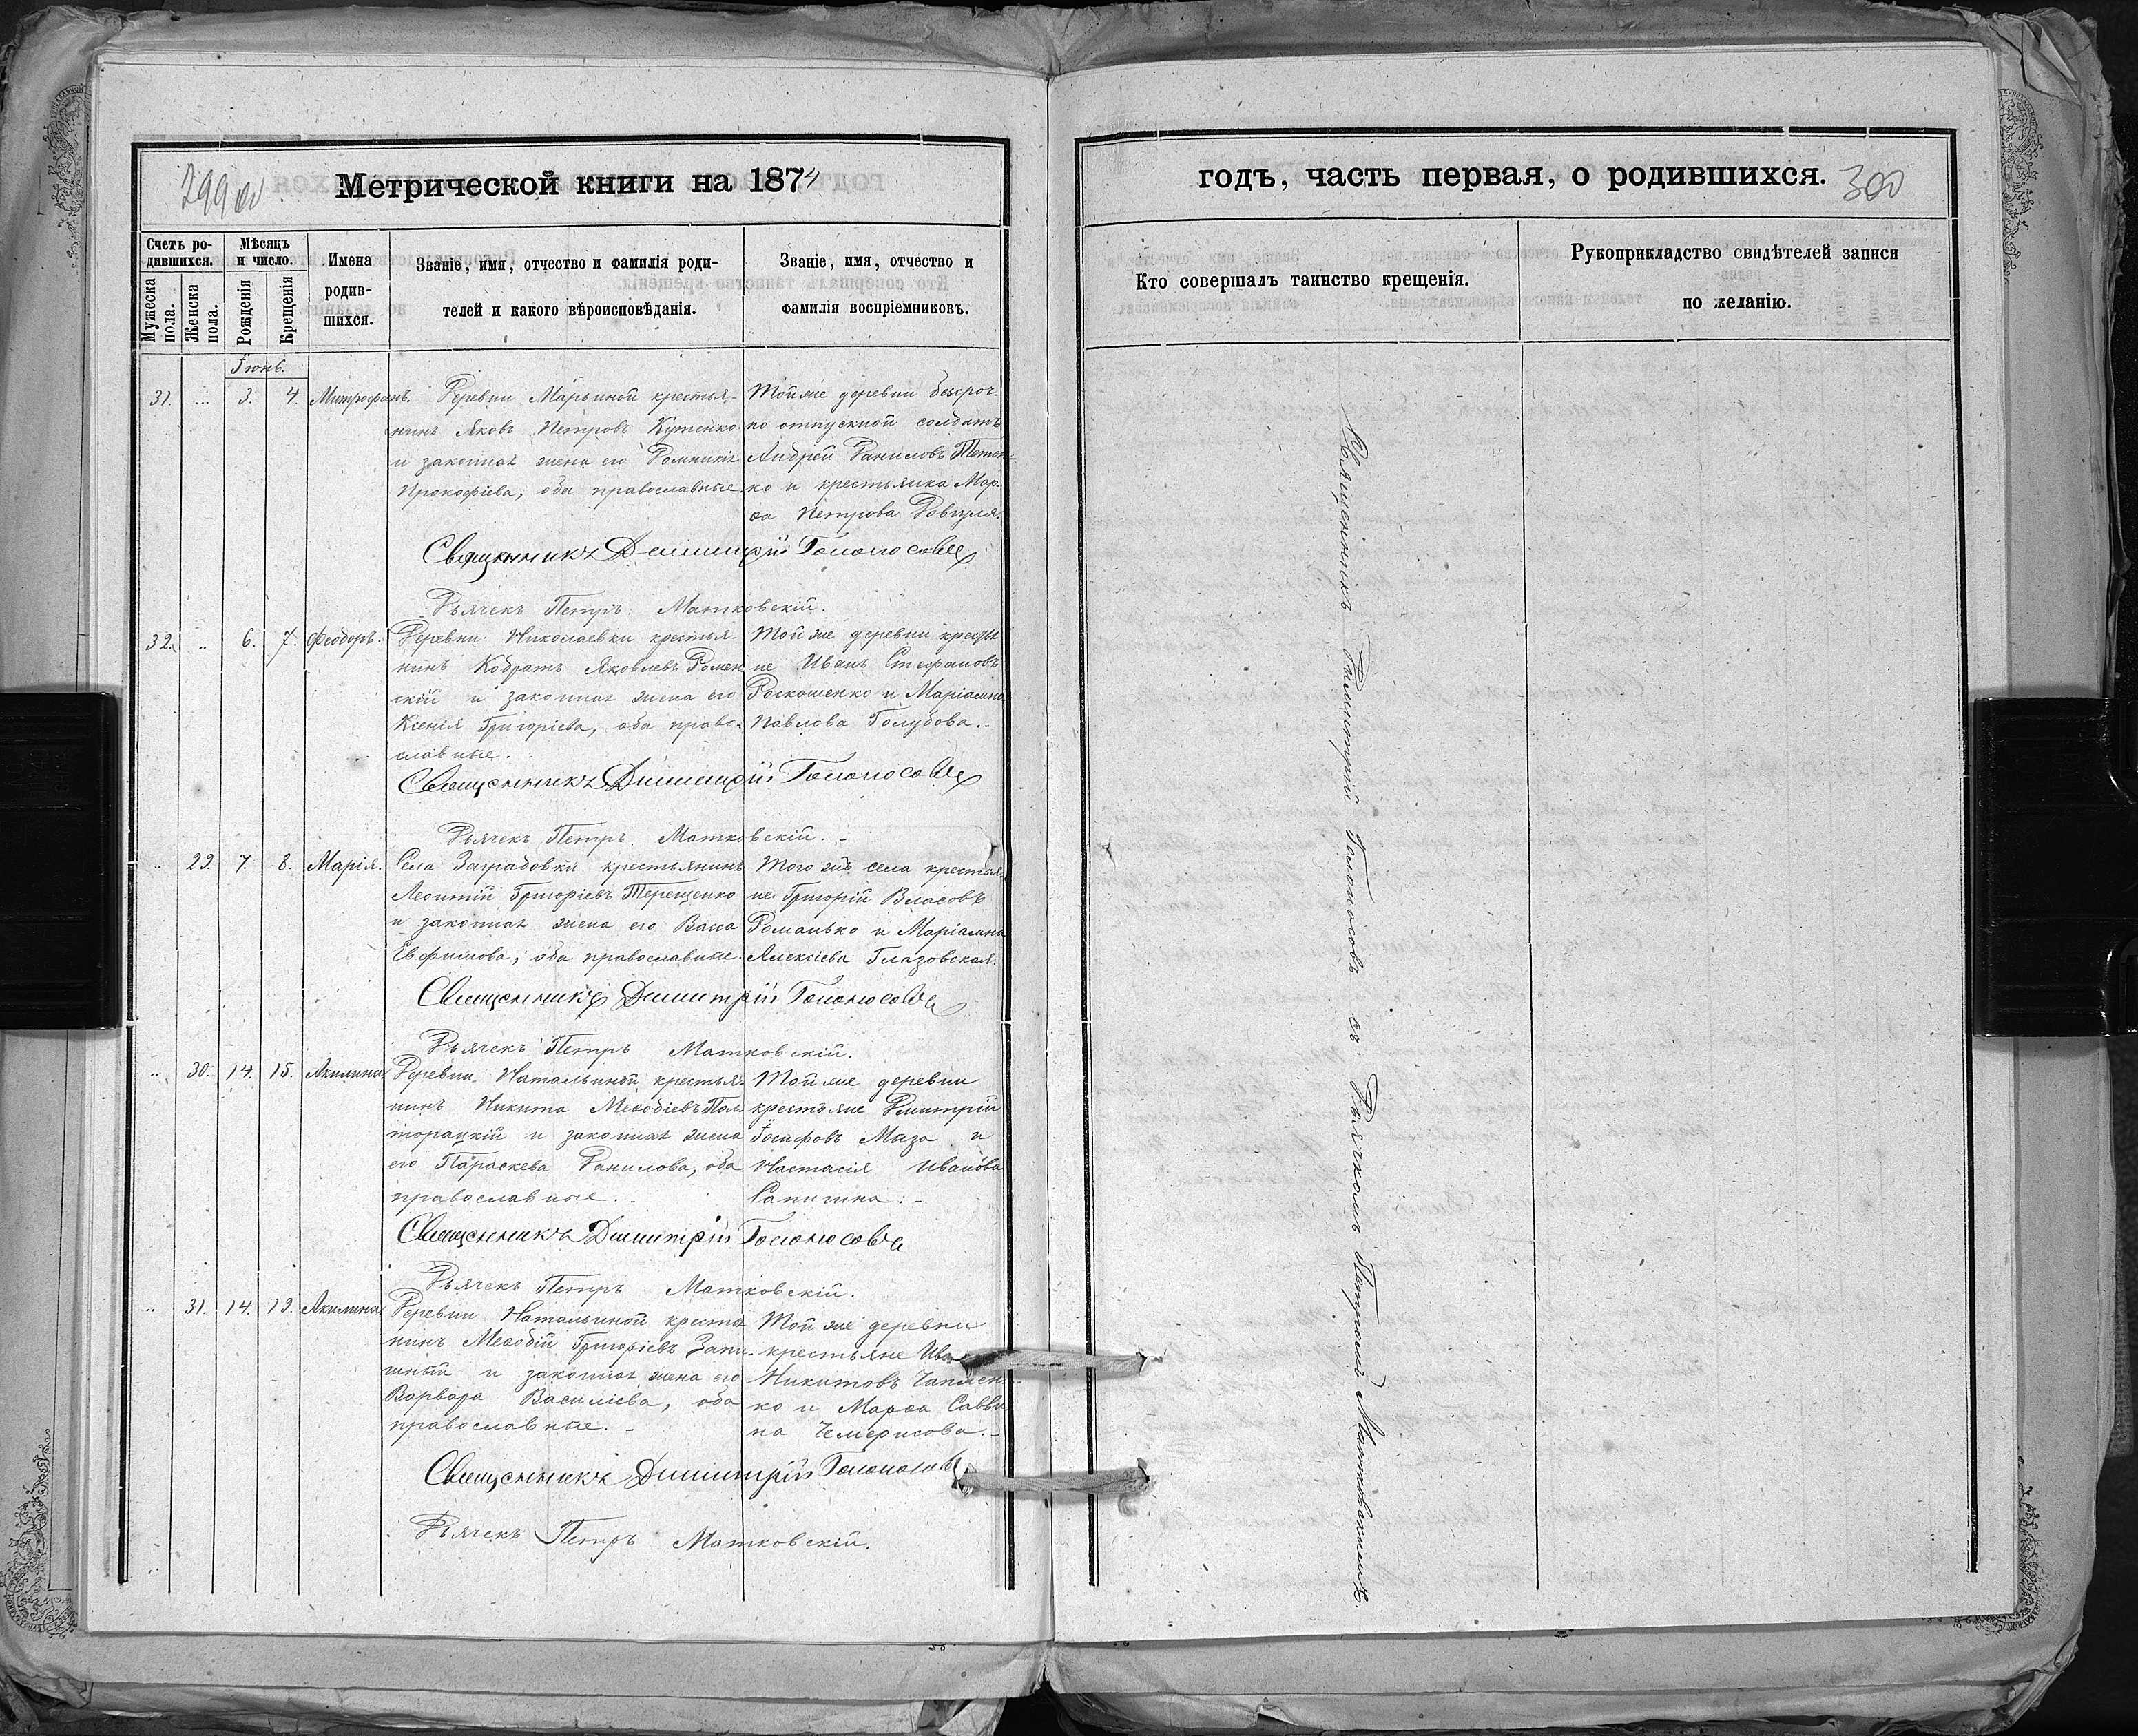 299 об
Метрической книги на 1874
Счетъ родившихся.
Мужеска пола.
Женска пола.
Мѣсяцъ и число.
Рожденія
Крещенія
Имена родившихся.
Званіе, имя, отчество и фамилія родителей и какого вѣроисповѣданія.
Званіе, имя, отчество и фамилія воспріемниковъ.
Іюнь.
31. ... 3. 4. Митрофанъ.
Деревни Марьиной крестья-
нинъ Яковъ Петровъ Куценко
и законная жена его Домникія
Прокофіева, оба православные.
Той же деревни безсроч-
но отпускной солдатъ
Андрей Даниловъ
ко и крестьянка Мар-
ѳа Петрова Довгуля.
Священникъ Димитрій Голоносовъ
Дьячекъ Петръ Матковскій.
32. .. 6. 7. Феодоръ.
Деревни Николаевки крестья-
нинъ Кодратъ Яковлевъ Ромен
скій и законная жена его
Ксенія Григоріева, оба право-
славные.
Той же деревни крестья
не Иванъ Стефановъ
Роскошенко и Маріамна
Павлова Голубова.-
Священникъ Димитрій Голоносовъ
Дьячекъ Петръ Матковскій. -
.. 29. 7. 8. Марія.
Села Заградовки крестьянинъ
Леонтій Григоріевъ Терещенко
и законная жена его Васса
Евфимова, оба православные.
Того же села крестья
не Григорій Власовъ
Романько и Маріамна
Алексіева Глазовская.
Священникъ Димитрій Голоносовъ
Дьячекъ Петръ Матковскій.
.. 30. 14. 15. Акилина
Деревни Натальиной крестья-
нинъ Никита Меѳодіевъ Пол
торацкій и законная жена
его Параскева Данилова, оба
православные. -
Той же деревни
крестьяне Димитрій
Іосифовъ Маза и
Настасія Иванова
Священникъ Димитрій Голоносовъ
Дьячекъ Петръ Матковскій.
.. 31. 14. 19. Акилина
Деревни Натальиной крестья
нинъ Меѳодій Григоріевъ
и законная жена его
Варвара Василіева, оба
православные. -
Той же деревни
крестьяне
Никитовъ
ко и Марѳа Савви
на Чемерисова. -
Священникъ Димитрій Голоносовъ
Дьячекъ Петръ Матковскій.
годъ, часть первая, о родившихся.
300
Кто совершалъ таинство крещенія.
Рукоприкладство свидѣтелей записи по желанію.
Священникъ Димитрій Голоносовъ съ Дьячкомъ Петромъ Матковскимъ.